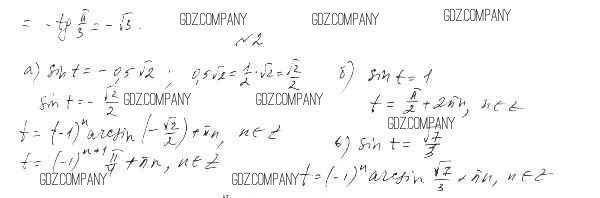 = - tg π/3 = - √3.
GDZ.COMPANY GDZ.COMPANY GDZ.COMPANY
№2
а) sin t = - 0,5√2 ; 0,5√2 = 1/2 · √2 = √2/2
sin t = - √2/2
GDZ.COMPANY GDZ.COMPANY
t = (-1)ⁿ arcsin (- √2/2) + πn, n ∈ Z
t = (-1)ⁿ⁺¹ π/4 + πn, n ∈ Z
GDZ.COMPANY
б) sin t = 1
t = π/2 + 2πn, n ∈ Z
GDZ.COMPANY
в) sin t = √7/3
GDZ.COMPANY
t = (-1)ⁿ arcsin √7/3 + πn, n ∈ Z